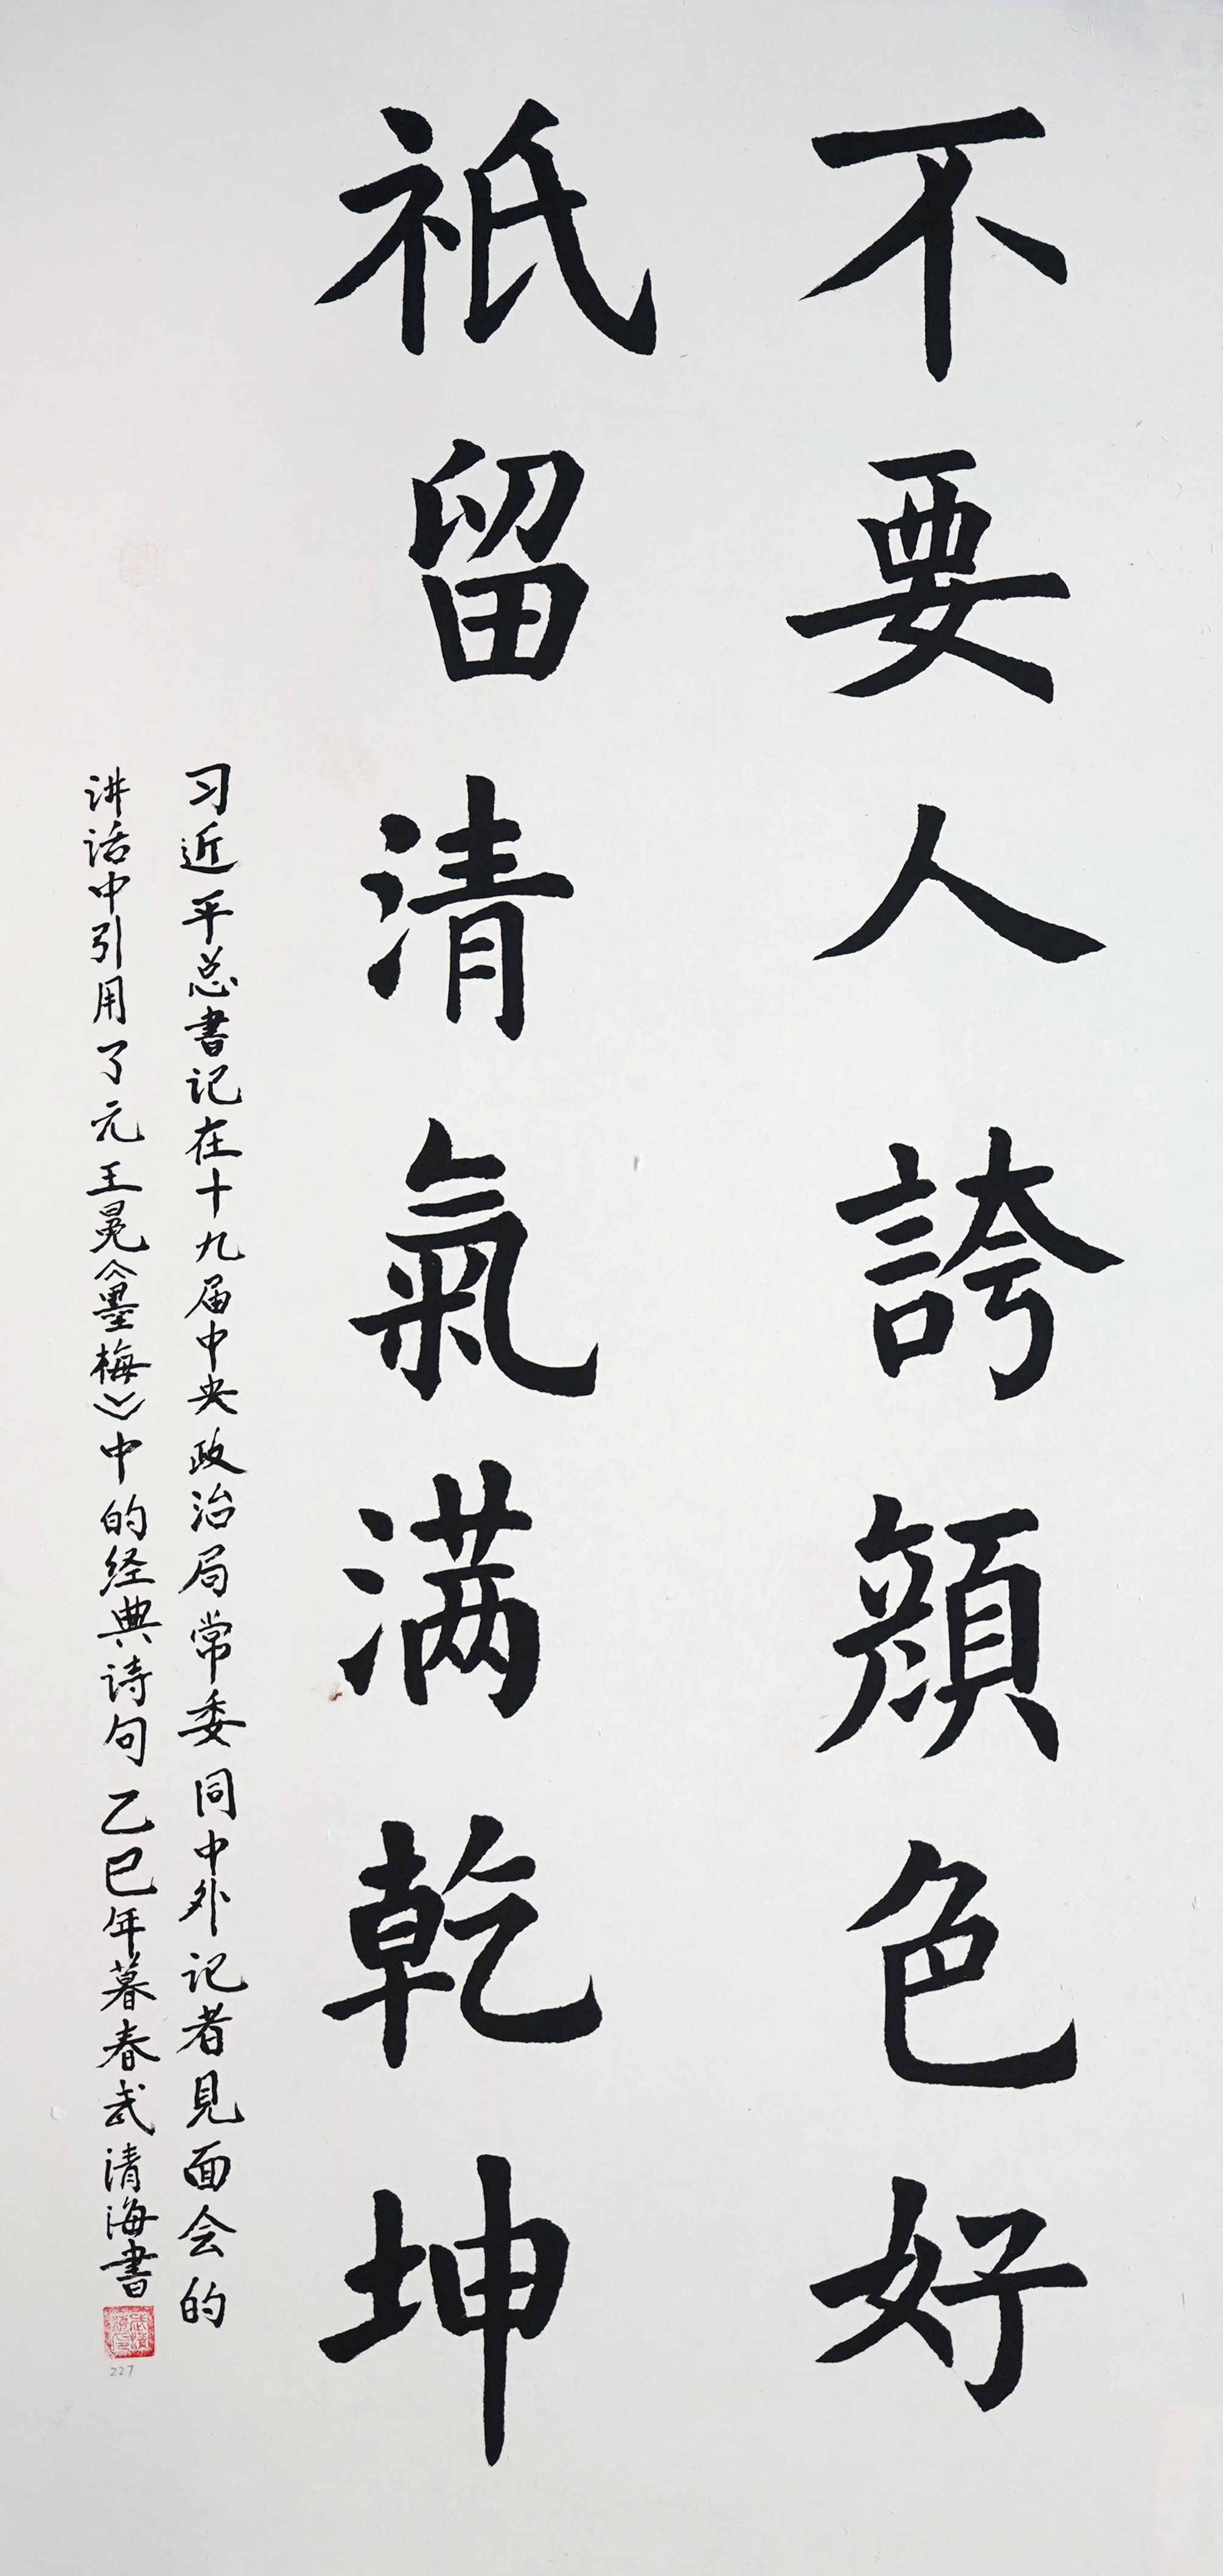 不要人誇顏色好
祇留清氣满乾坤
习近平总書记在十九届中央政治局常委同中外记者見面会的
讲话中引用了元王冕《墨梅》中的经典诗句乙巳年暮春武清海書
227